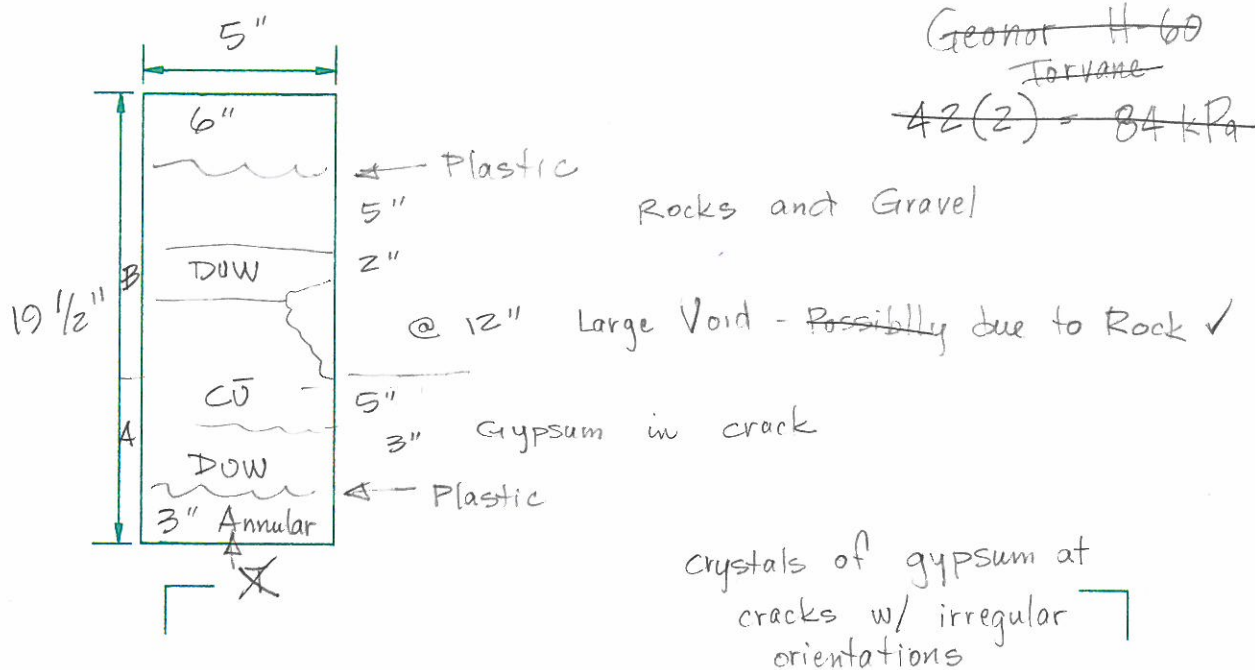 5"
Geonor H-60
Torvane
42(2) = 84 kPa
6"
Plastic
5"
Rocks and Gravel
DUW
2"
B
19 1/2"
@ 12" Large Void - Possiblly due to Rock ✓
CŪ
5"
A
3" Gypsum in crack
DUW
Plastic
3" Annular
crystals of gypsum at
cracks w/ irregular
orientations